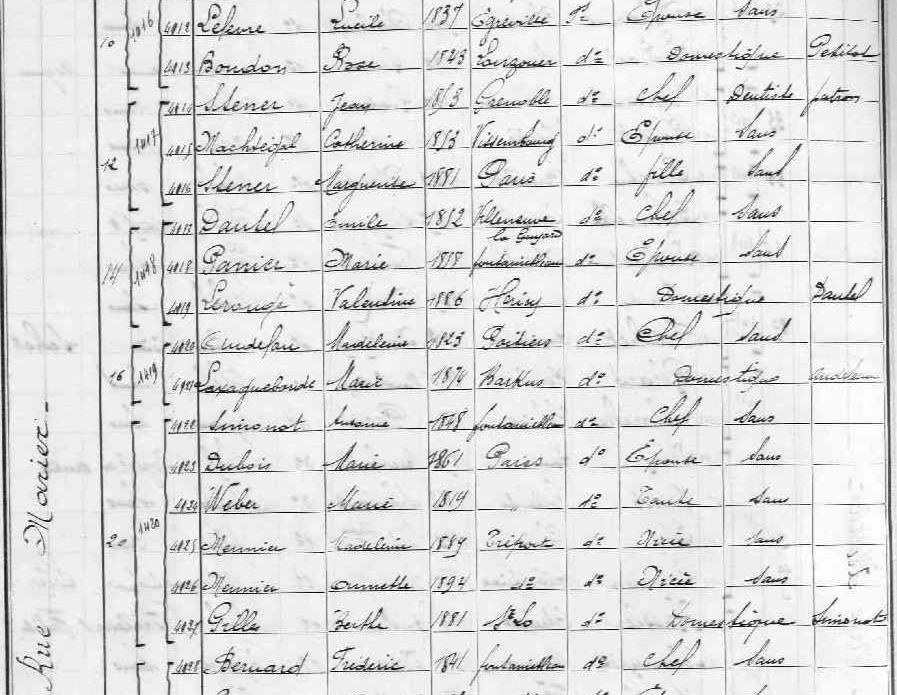 Rue Marier -
10 1416 4012 Lefevre Lucile 1837 Egreville Fse Epouse Sans
4013 Boudon Rose 1843 dº Domestique Petitot
12 1417 4014 Stener Jean 1853 Grenoble dº Chef Dentiste patron
4015 Catherine 1853 Vissembourg dº Epouse Sans
4016 Stener Marguerite 1881 Paris dº fille Sans
14 1418 4017 Dautel Emile 1852 Villeneuve la Guyard dº Chef Sans
4018 Panier Marie 1858 fontainebleau dº Epouse Sans
4019 Lerouge Valentine 1886 Hericy dº Domestique Dautel
16 1419 4020 Madeleine 1823 Poitiers dº Chef Sans
4021 Marie 1874 Barkus dº Domestique
20 1420 4022 Simonot 1848 fontainebleau dº Chef Sans
4023 Dubois Marie 1861 Paris dº Epouse Sans
4024 Weber Marie 1819 dº Tante Sans
4025 Meunier Madeleine 1889 Tréport dº Nièce Sans
4026 Meunier 1894 dº dº Nièce Sans
4027 Gille Berthe 1881 St Lo dº Domestique Simonot
4028 Bernard Frédéric 1841 fontainebleau dº Chef Sans